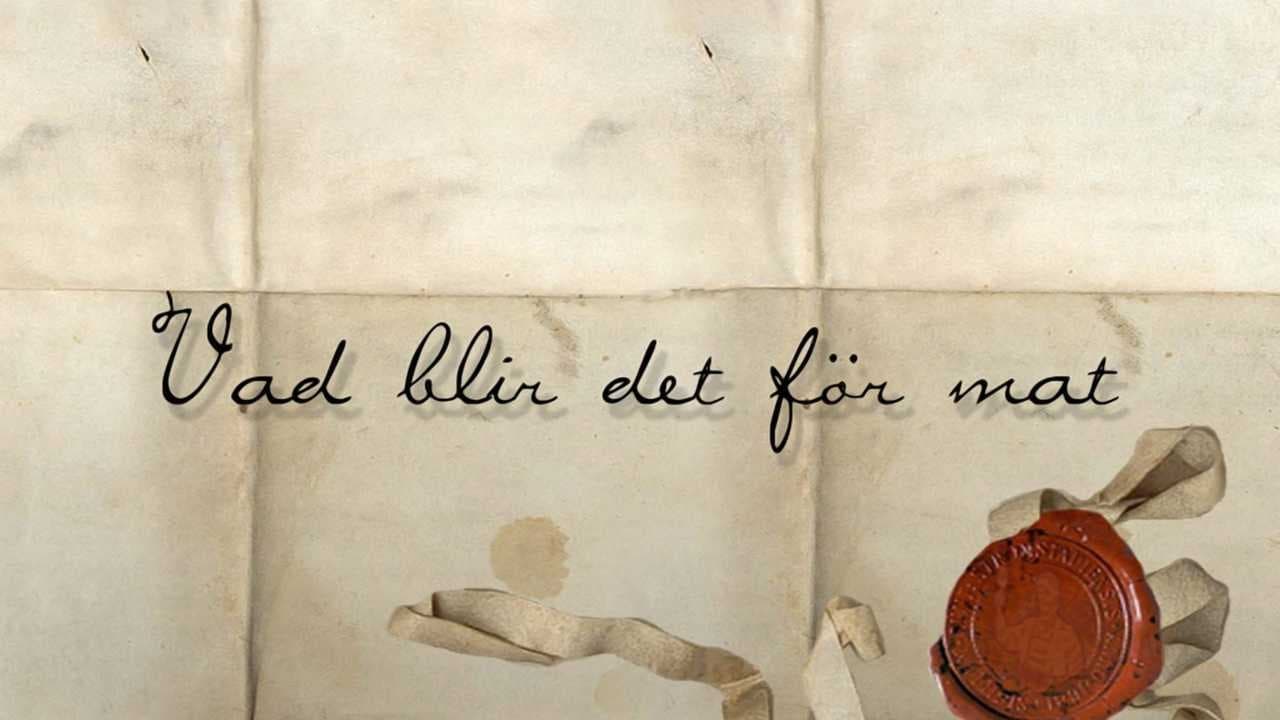 Vad blir det för mat